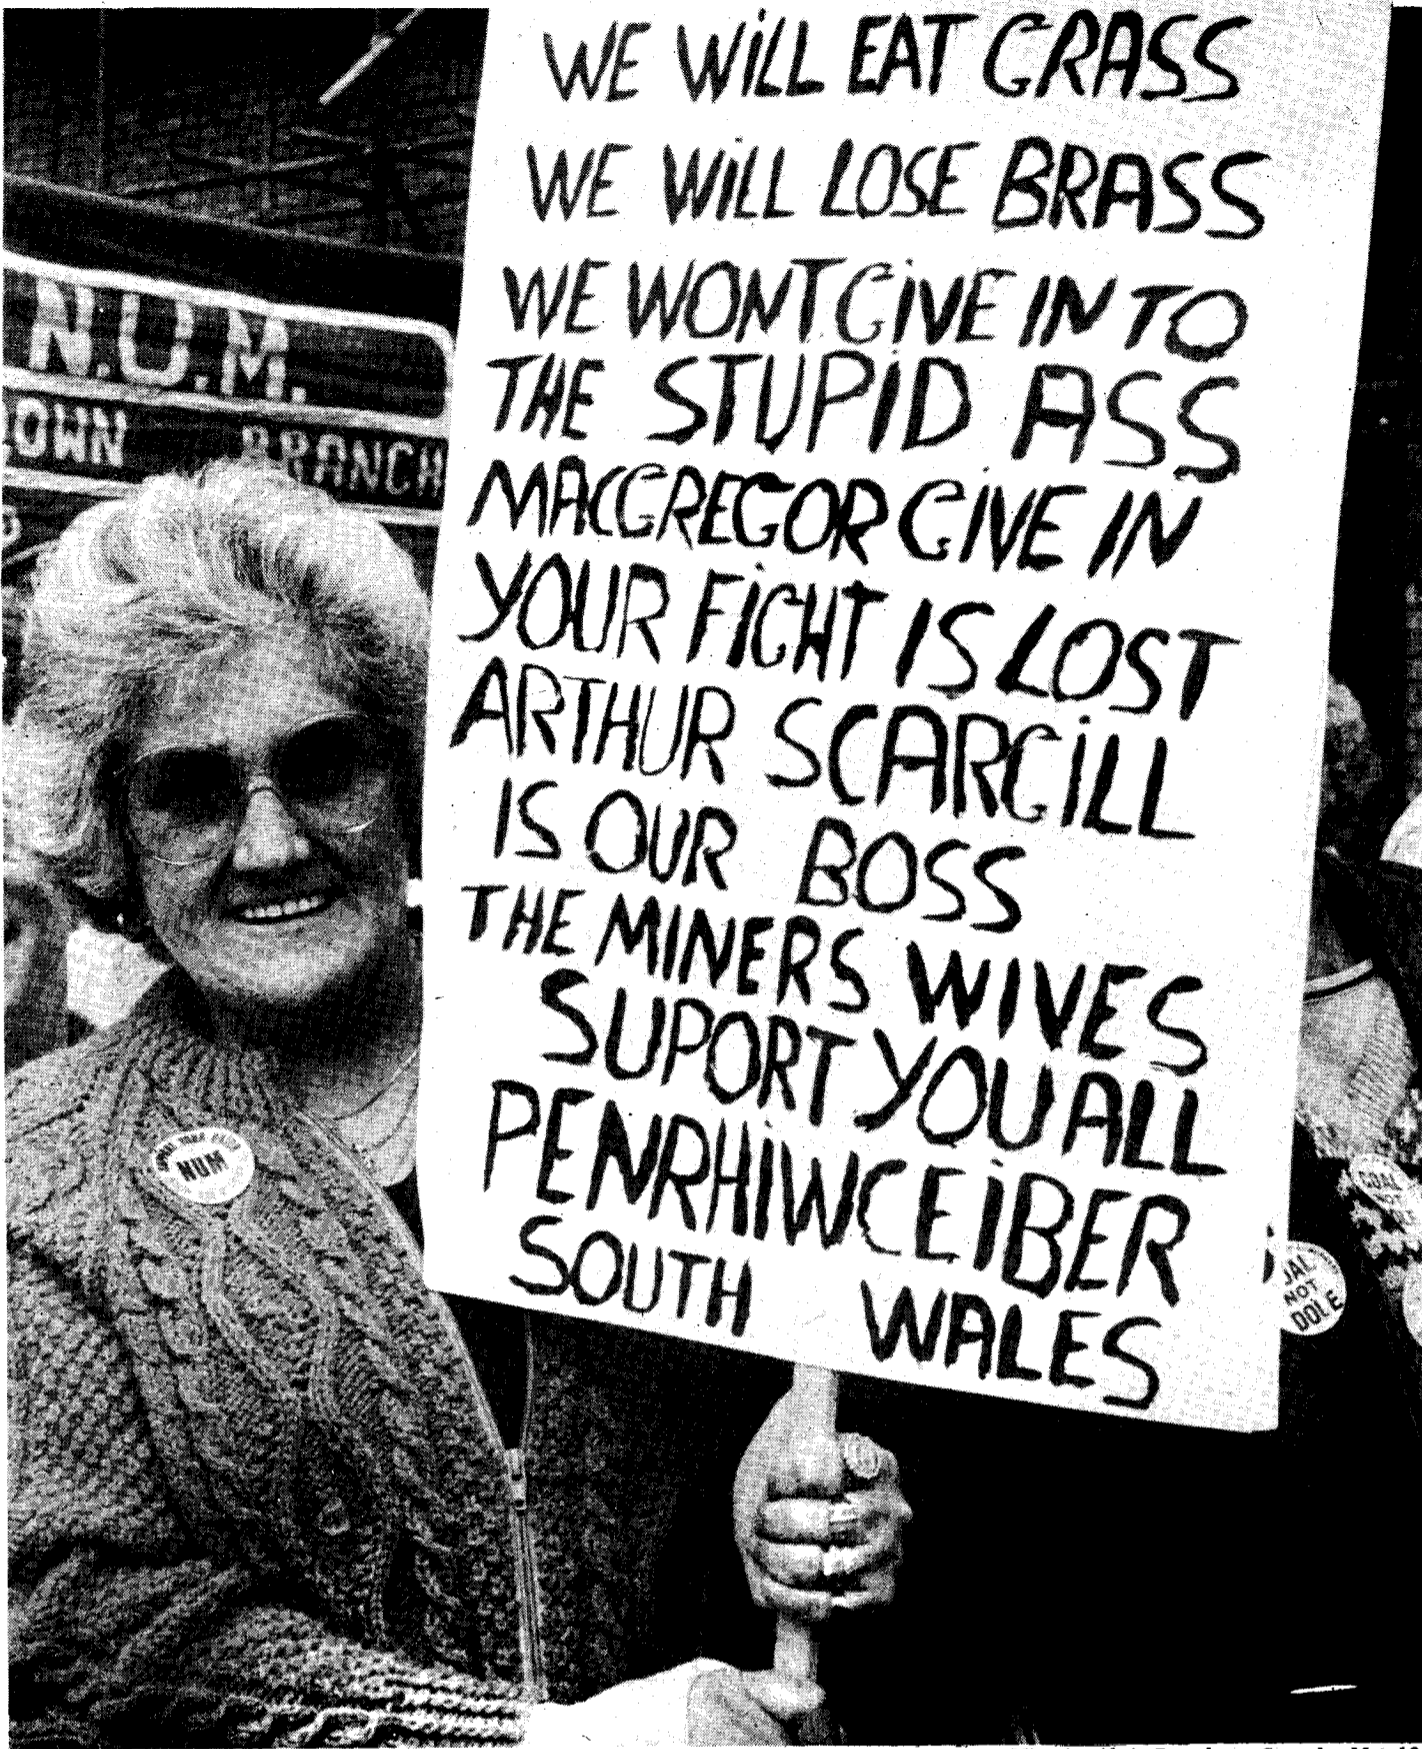 WE WiLL EAT GRASS
WE WiLL LOSE BRASS
WE WONT GiVE IN TO
THE STUPiD ASS
MACGREGOR GiVE IN
YOUR FiGHT IS LOST
ARTHUR SCARGiLL
IS OUR BOSS
THE MINERS WIVES
SUPORT YOU ALL
PENRHiWCEiBER
SOUTH WALES
N.U.M.
OWN BRANCH
NUM
COAL
NOT
OAL
NOT
DOLE